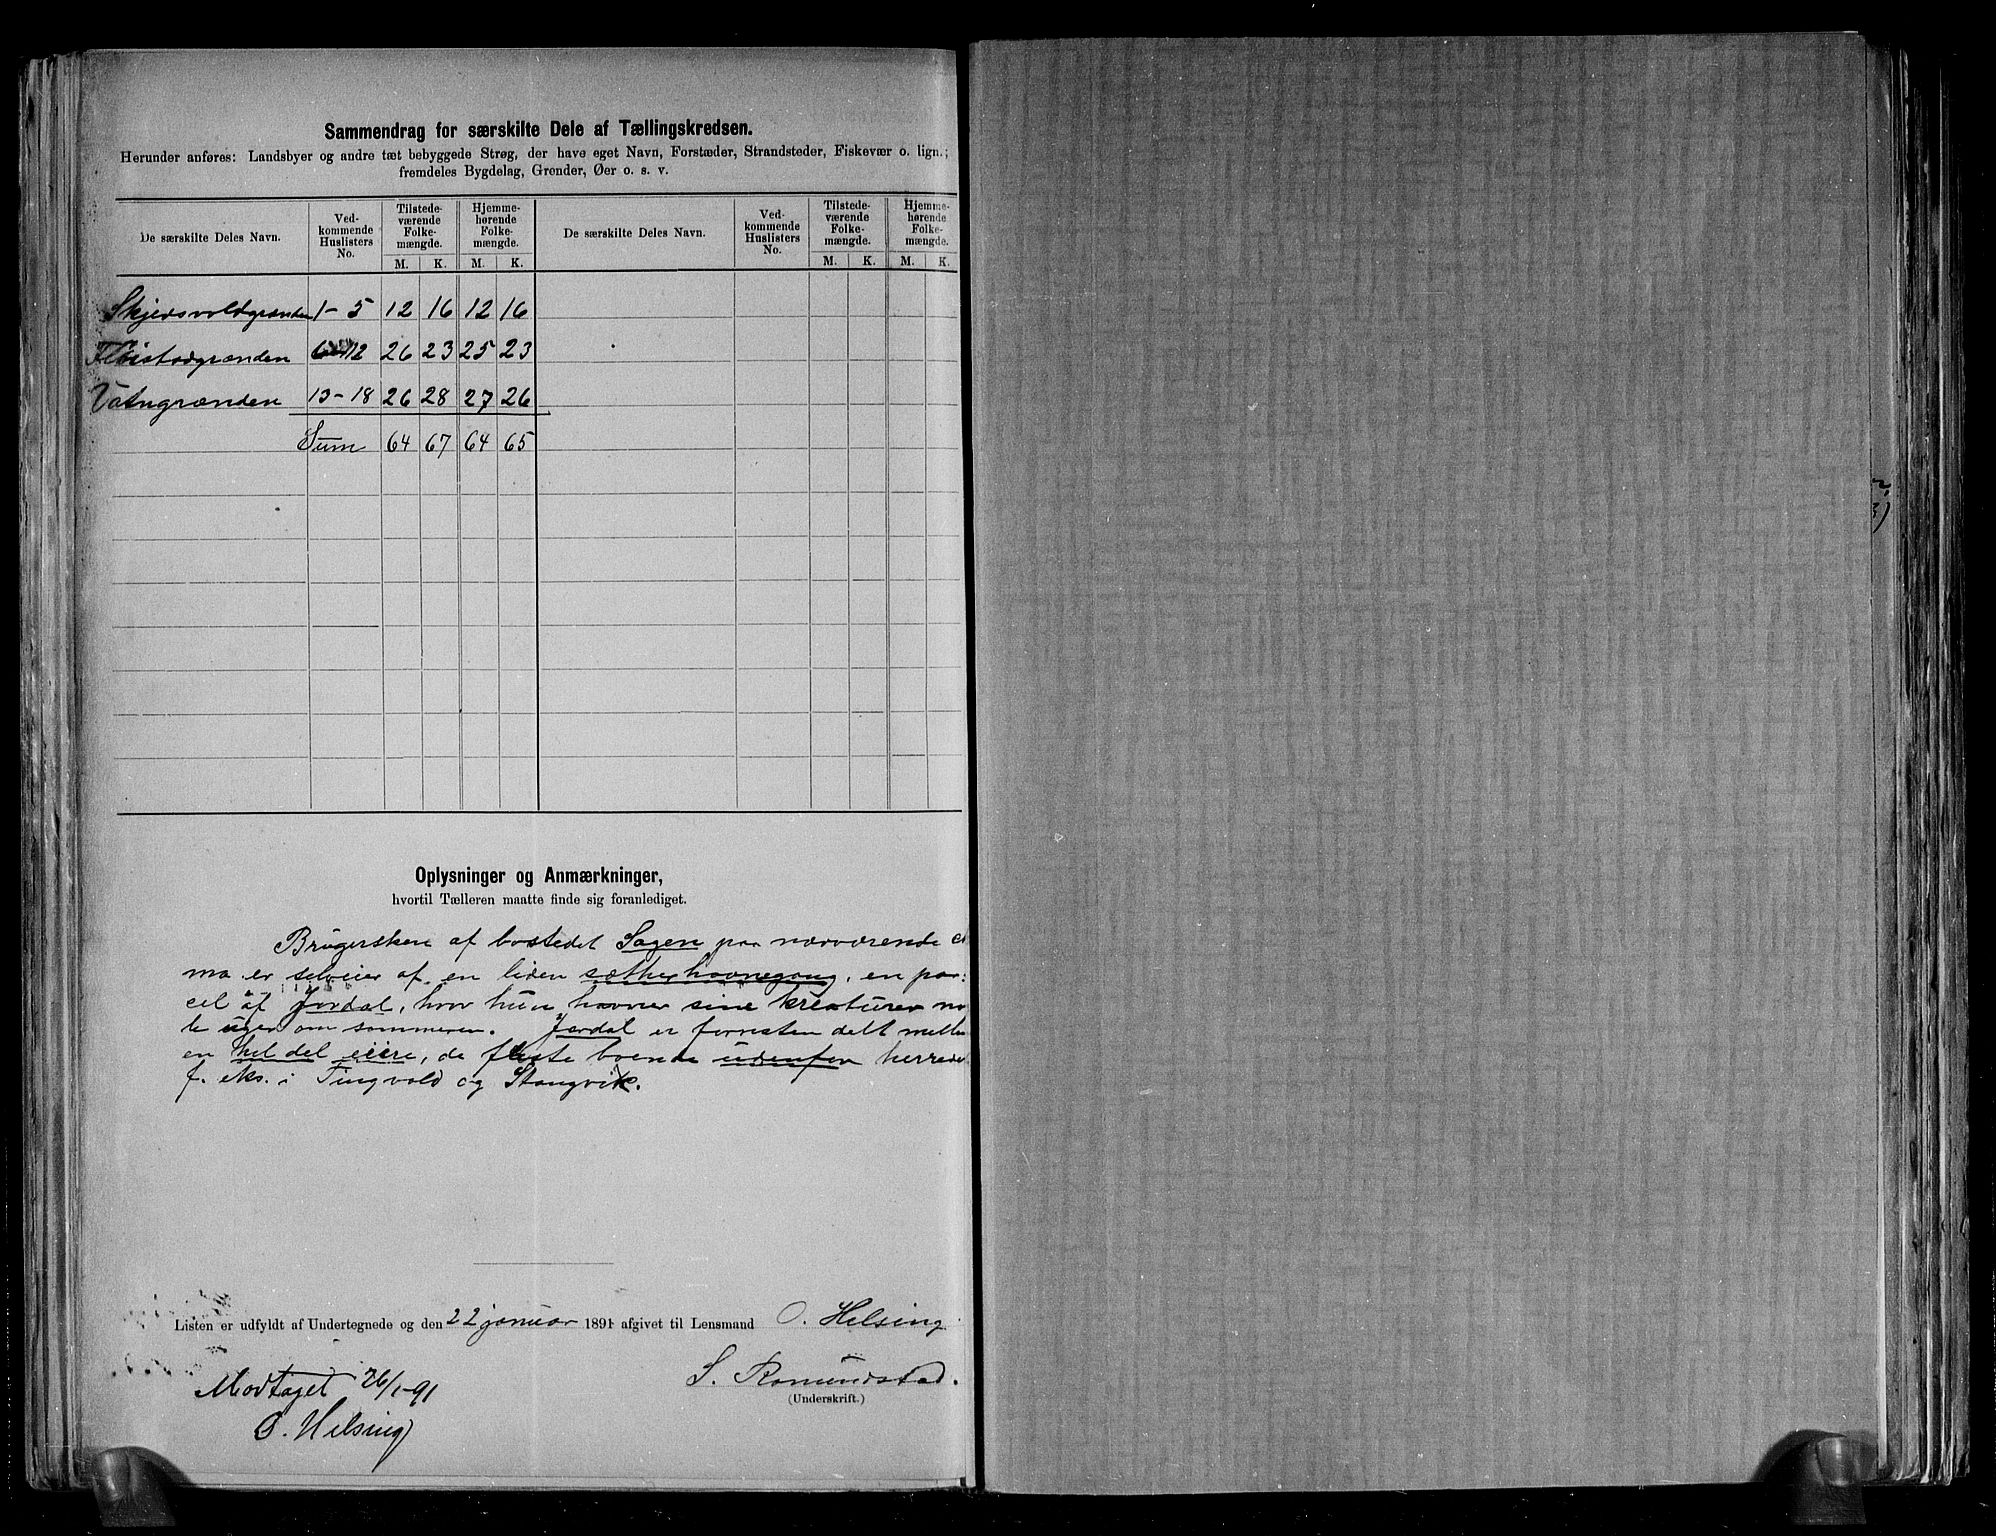 Sammendrag for særskilte Dele af Tællingskredsen.
Herunder anføres: Landsbyer og andre tæt bebyggede Strøg, der have eget Navn, Forstæder, Strandsteder, Fiskevær o. lign.;
fremdeles Bygdelag, Grender, Øer o. s. v.
De særskilte Deles Navn. Ved-kommende Huslisters No. Tilstede-værende Folke-mængde. Hjemme-hørende Folke-mængde. De særskilte Deles Navn. Ved-kommende Huslisters No. Tilstede-værende Folke-mængde. Hjemme-hørende Folke-mængde.
M. K. M. K. M. K. M. K.
Skjersvoldgrænden 1-5 12 16 12 16
Fløistadgrænden 6-12 26 23 25 23
Vatngrænden 13-18 26 28 27 26
Sum 64 67 64 65
Oplysninger og Anmærkninger,
hvortil Tælleren maatte finde sig foranlediget.
Brugersken af bostedet Sagen paa nærværende
ma er selveier af en liden sætherhavnegang, en par-
cel af Jordal, hvor hun havner sine kreaturer no
le uger om sommeren. Jordal er forresten delt mell
en hel del eiere, de fleste boende udenfor herrede
f. eks. i Tingvold og Stangvik.
Listen er udfyldt af Undertegnede og den 22 januar 1891 afgivet til Lensmand O. Helsing.
S. Romundstad.
(Underskrift.)
Modtaget 26/1-91
O. Helsing